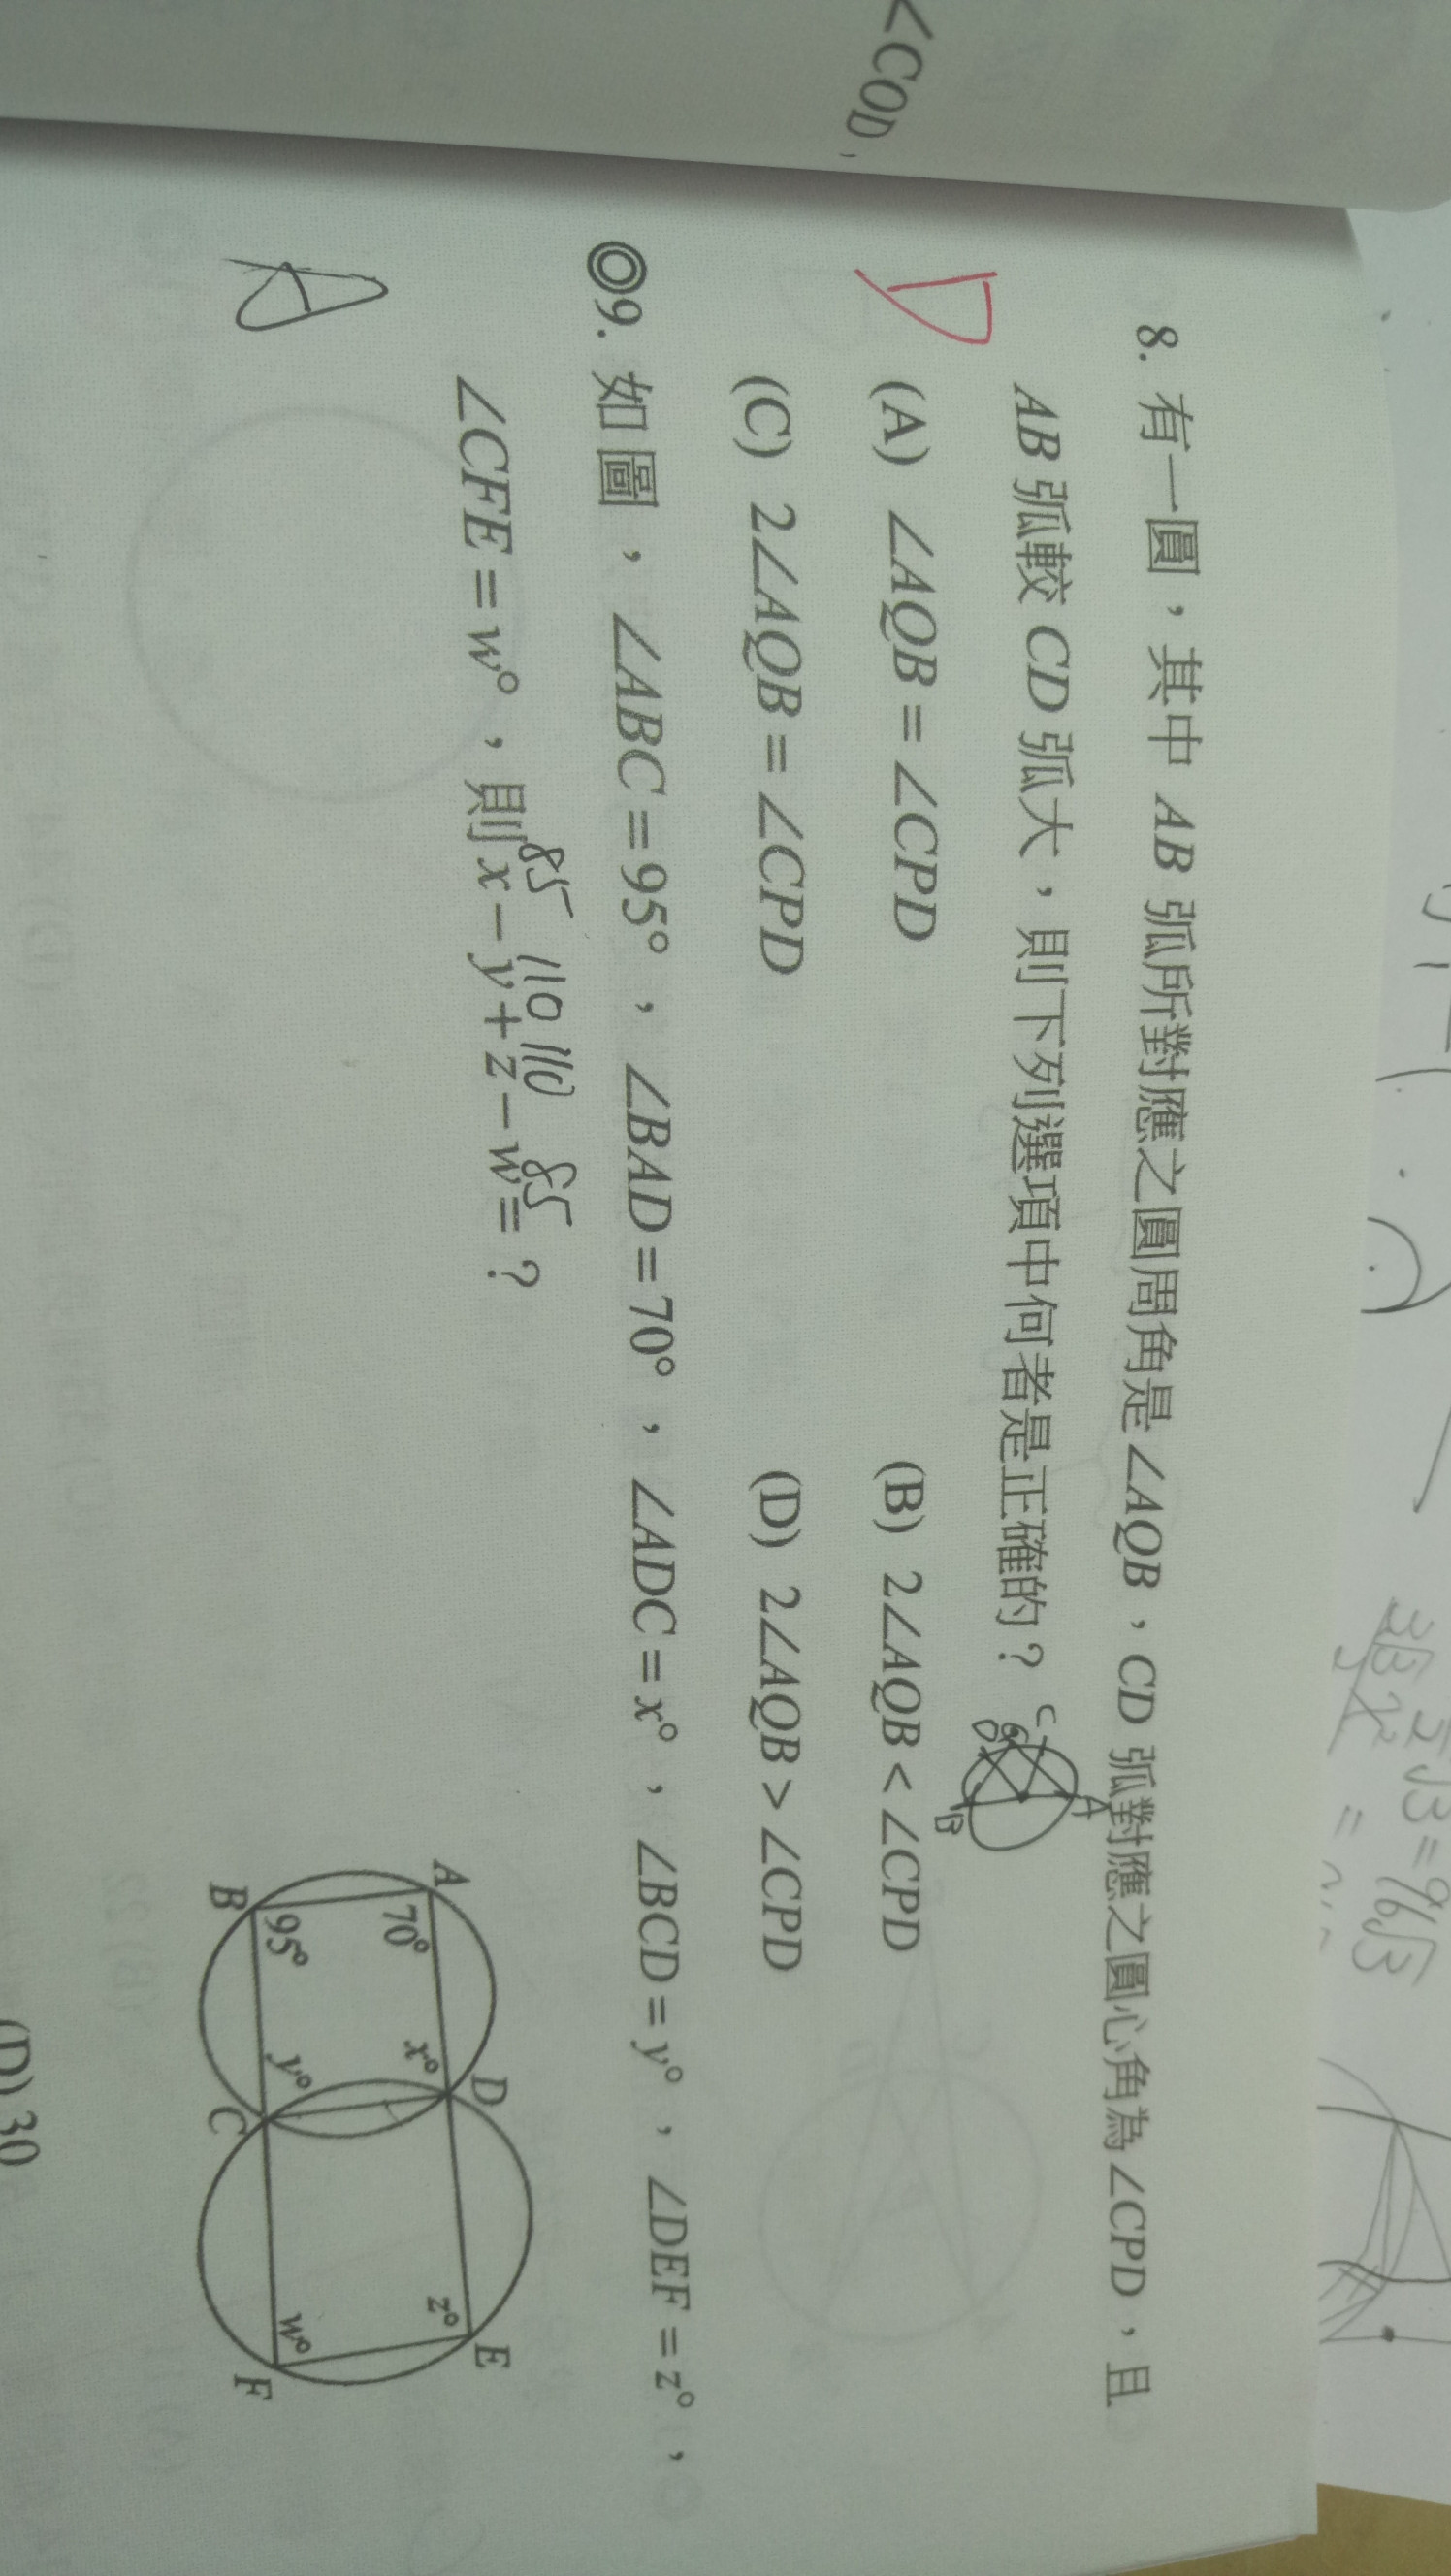 ∠COD,
8. 有一圓，其中 AB 弧所對應之圓周角是∠AQB，CD 弧對應之圓心角為∠CPD，且
AB 弧較 CD 弧大，則下列選項中何者是正確的？
D
(A) ∠AQB = ∠CPD (B) 2∠AQB < ∠CPD
(C) 2∠AQB = ∠CPD (D) 2∠AQB > ∠CPD
C
D
A
B
◎9. 如圖，∠ABC = 95°，∠BAD = 70°，∠ADC = x°，∠BCD = y°，∠DEF = z°，
85 110 110 85
∠CFE = w°，則 x − y + z − w = ？
A
A D E
70° x° z°
95° y° w°
B C F
(D) 30